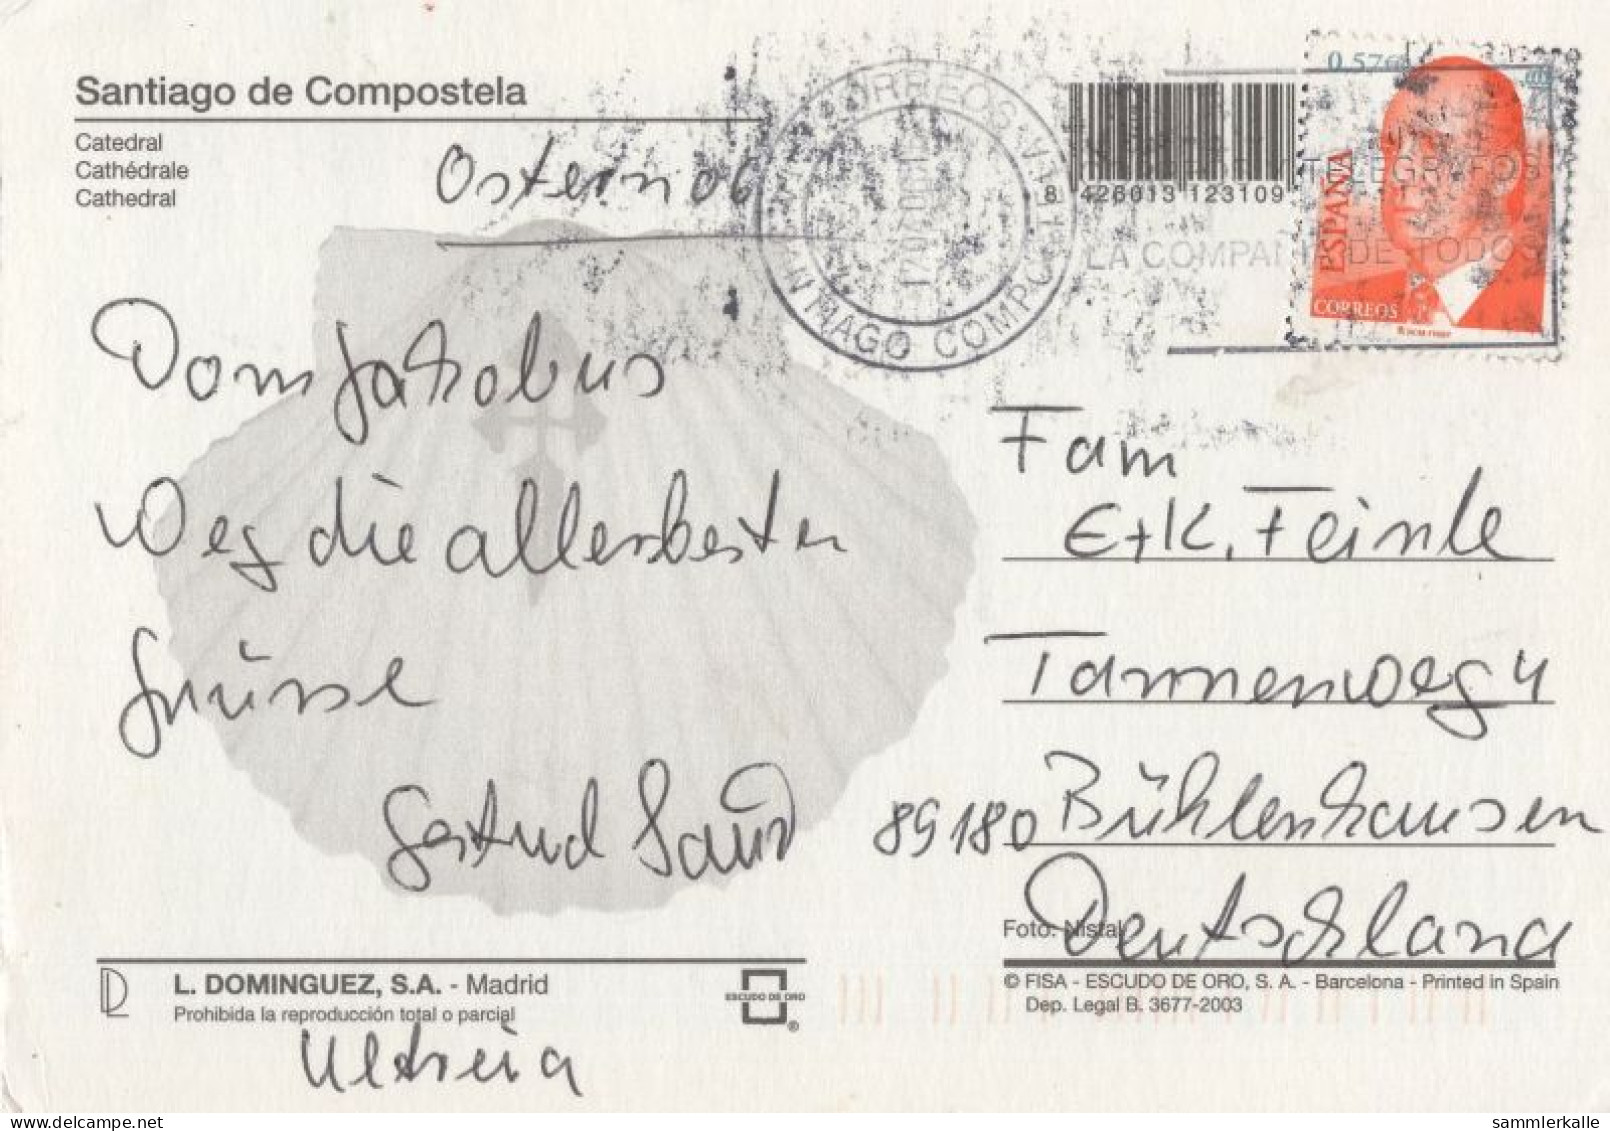 Santiago de Compostela
Catedral
Cathédrale
Cathedral
Ostern 06
CORREOS
SANTIAGO COMPOSTELA
8 426013 123109
TELEGRAFOS
LA COMPAÑIA DE TODOS
0.57€
ESPAÑA
CORREOS
Vom Jakobus
Weg die allerbesten
Grüsse
Gertrud
Fam
E+K. Feinle
Tannenweg 4
89180 Bühlenhausen
Deutschland
Foto: Nistal
L. DOMINGUEZ, S.A. - Madrid
Prohibida la reproducción total o parcial
ESCUDO DE ORO
®
© FISA - ESCUDO DE ORO, S. A. - Barcelona - Printed in Spain
Dep. Legal B. 3677-2003
Ultreia
sammlerkalle